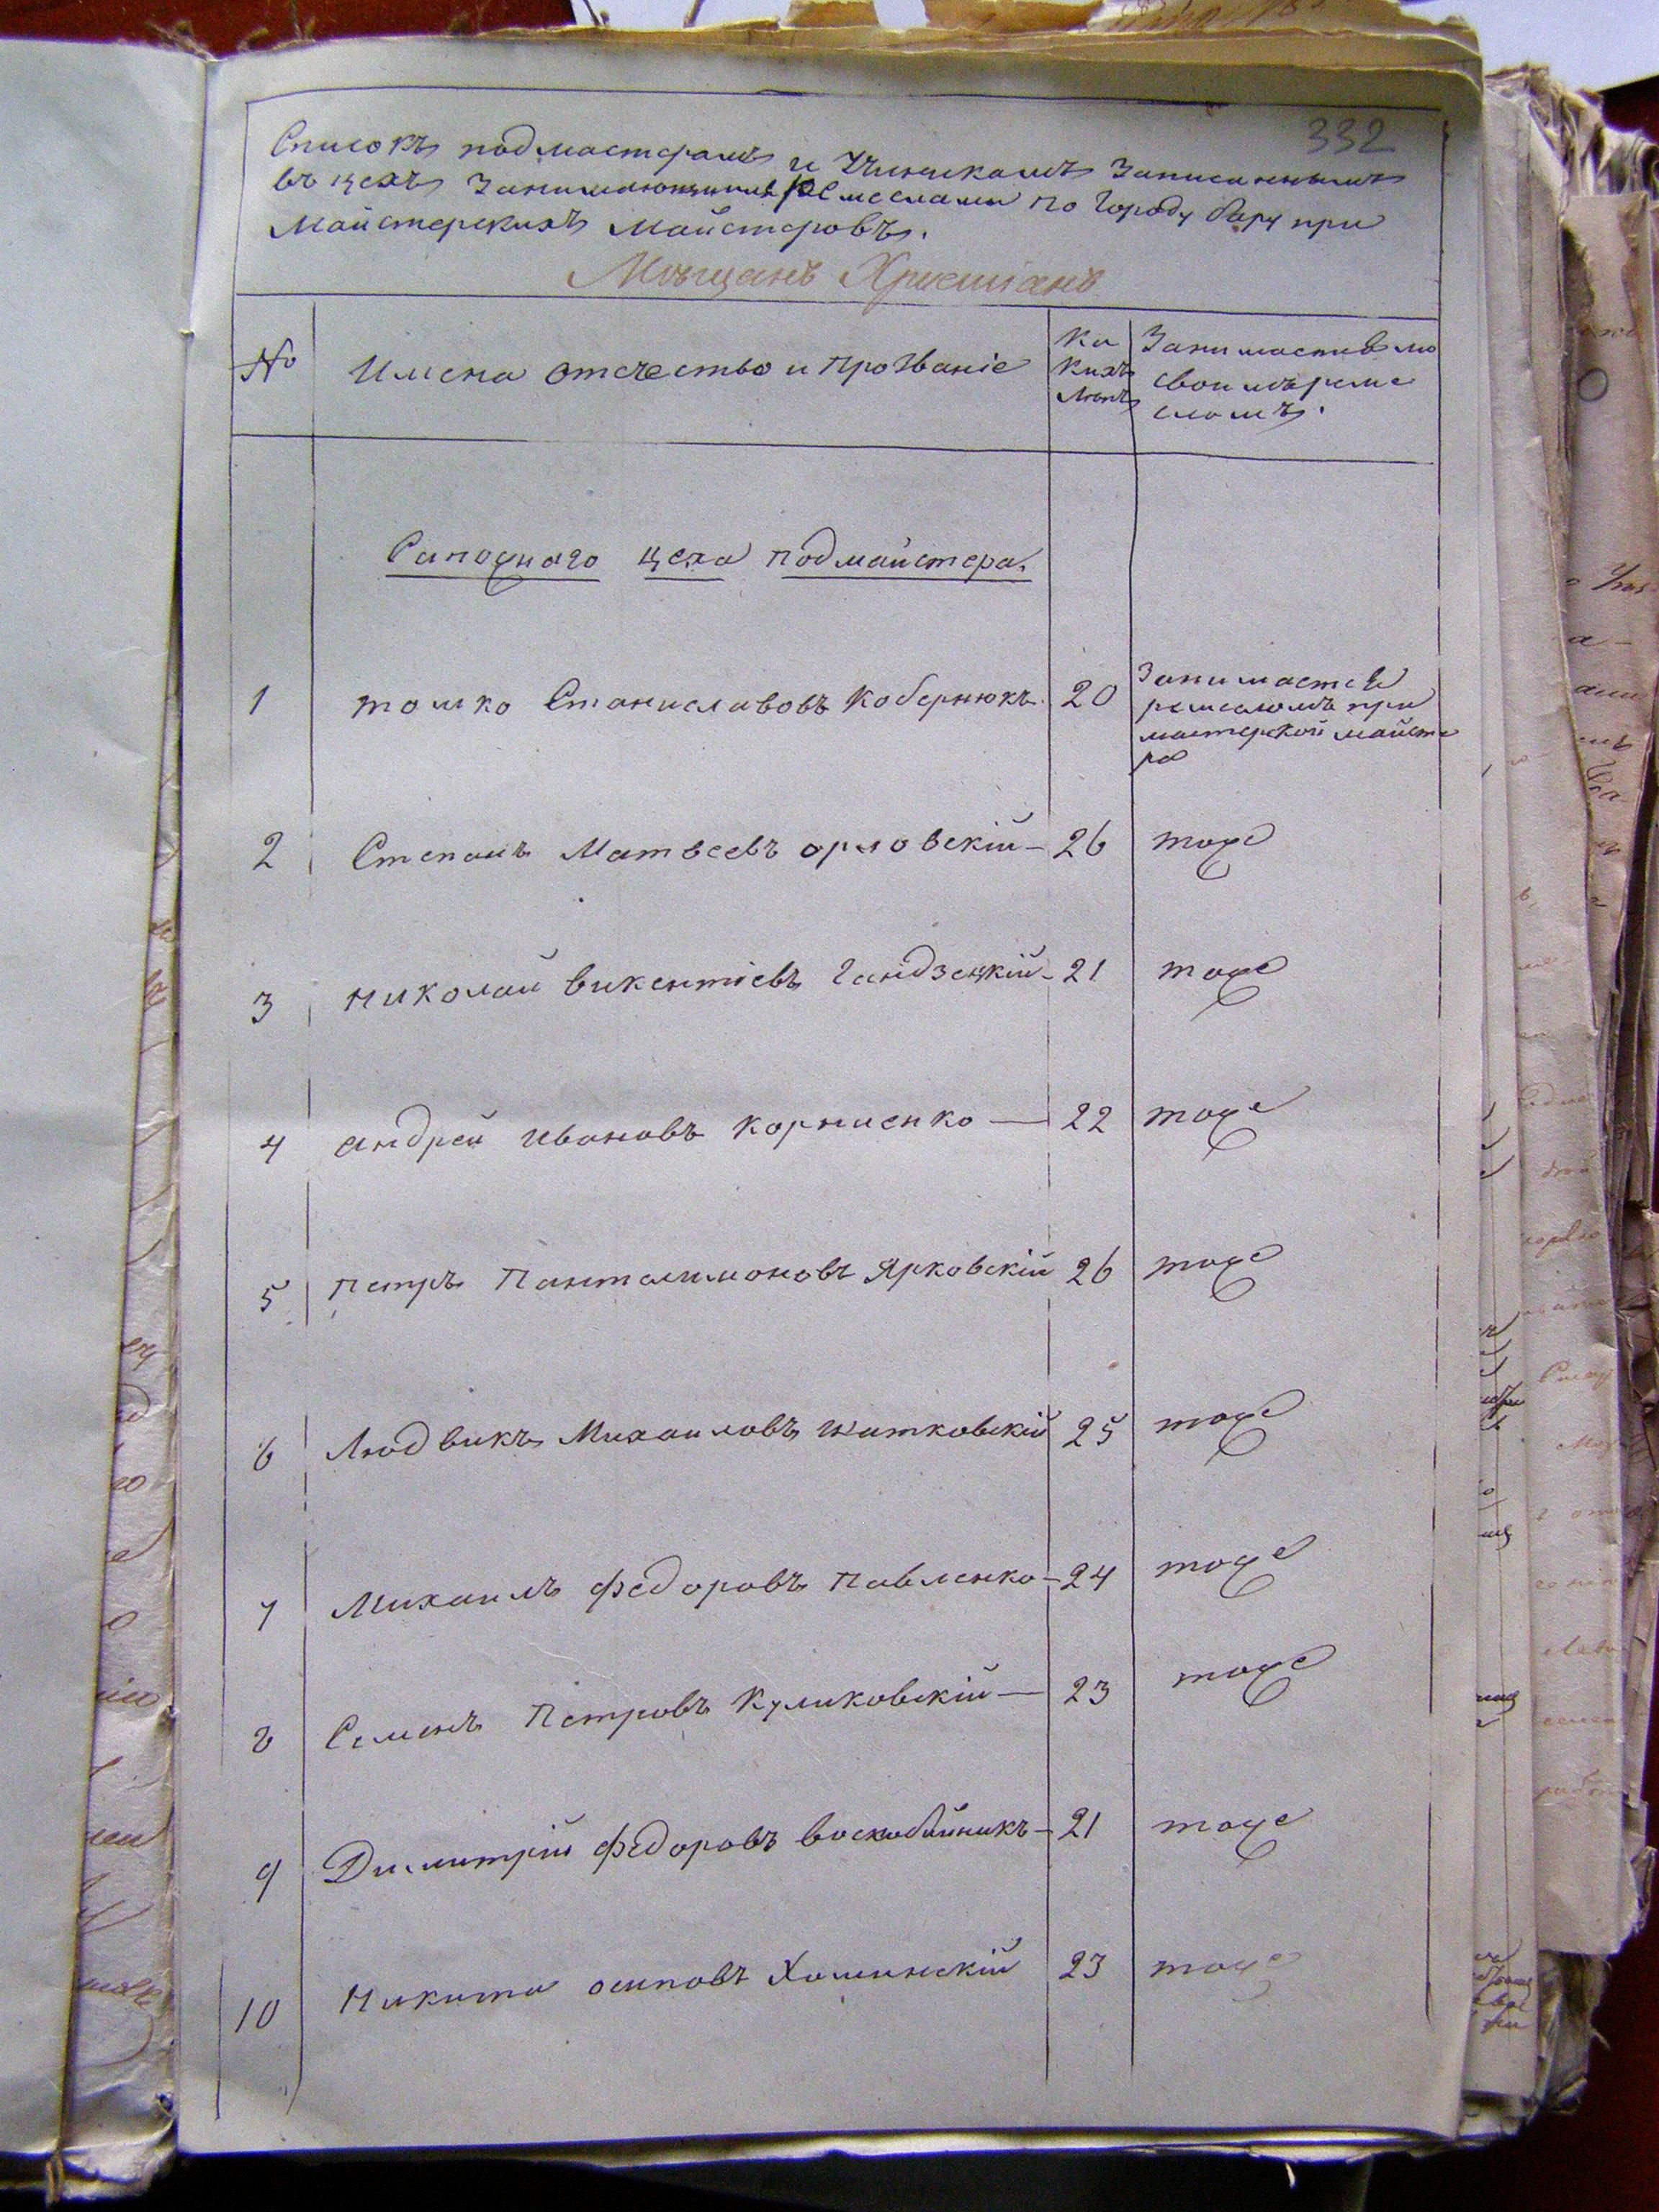 332
Списокъ подмастерамъ и Ученикамъ Записаннымъ
въ цехъ Занимающимся Ремеслами по городу бару при
Майстерскихъ Майстеровъ.
Мѣщанъ Христіанъ
№ Имена отечество и Прозваніе Ка Занимаетъ ли
кихъ своимъ реме
лѣтъ сломъ.
Сапожнаго цеха подмайстера.
1 томко Станиславовъ Кобернюкъ. 20 Занимается
ремесломъ при
мастерской майсте
ра
2 Степанъ Матвеевъ орловскій - 26 тоже
3 николай викентіевъ - 21 тоже
4 андрей ивановъ корниенко — 22 тоже
5 петръ Панталимоновъ Ярковскій 26 тоже
6 Людвикъ Михаиловъ житковскій 25 тоже
7 Михаилъ федоровъ павленко - 24 тоже
8 Семенъ Петровъ Куликовскій — 23 тоже
9 Димитрій федоровъ воскобійникъ - 21 тоже
10 Никита осиповъ Хоминскій 23 тоже